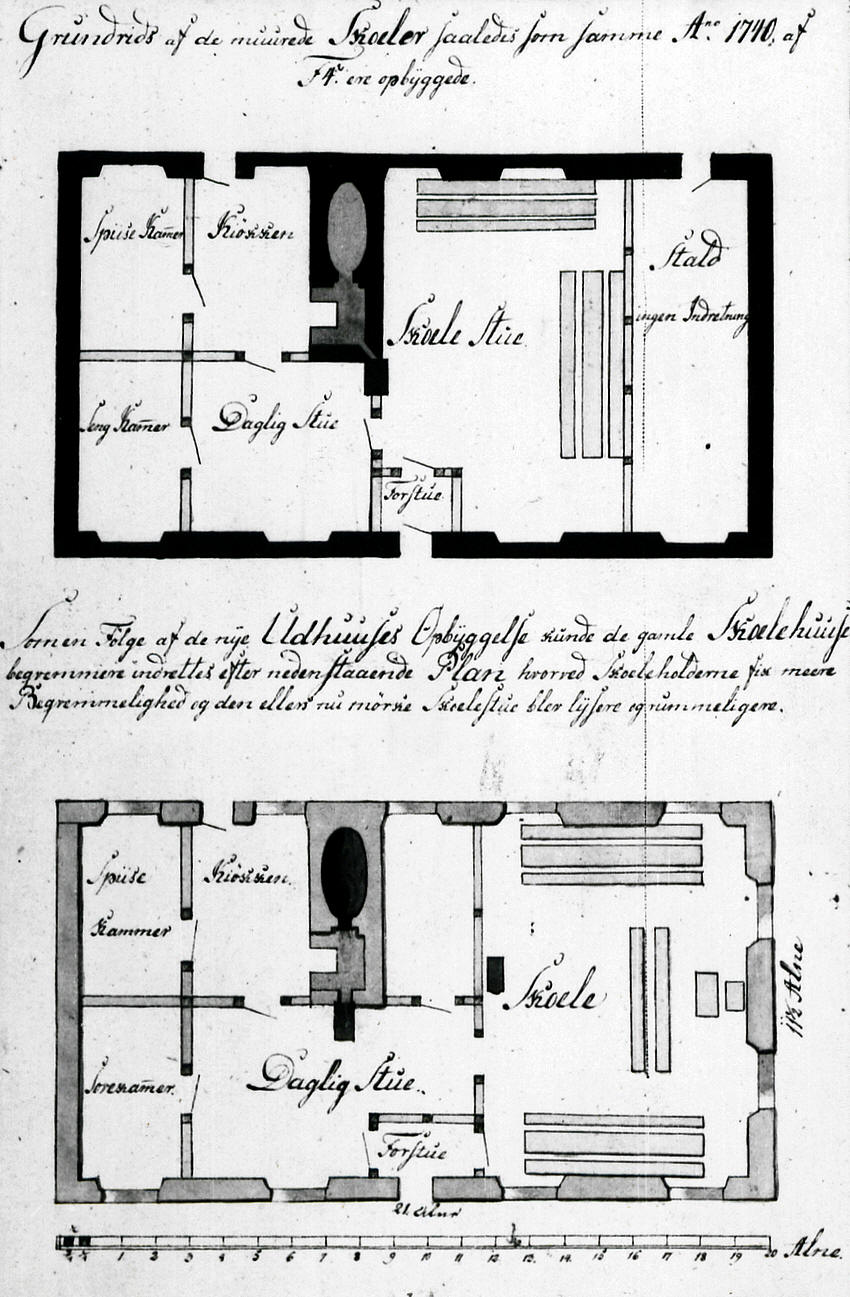 Grundrids af de muurede Skoeler saaledes som samme Ano 1740, af
F4: ere opbyggede.
Spiise Kamer
Kiökken
Stald
ingen Indretning
Skoele Stue
Seng Kamer
Daglig Stue
Forstue
Som en Følge af de nye Udhuuses Opbyggelse kunde de gamle Skoelehuuse
beqvemmere indrettes efter nedenstaaende Plan hvorved Skoeleholderne fik meere
Beqvemmelighed og den ellers nu mörke Skoelestue blev lysere og rummeligere.
Spiise
Kammer
Kiökken
Skoele
11½ Alne
Sovekamer
Daglig Stue
Forstue
21. Alne
1 2 3 4 5 6 7 8 9 10 11 12 13 14 15 16 17 18 19 20 Alne.